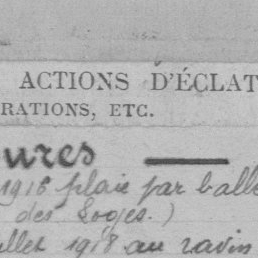 ACTIONS D'ÉCLAT
RATIONS, ETC.
ures —
1916 plaie par balle
des Loges.)
illet 1918 au ravin